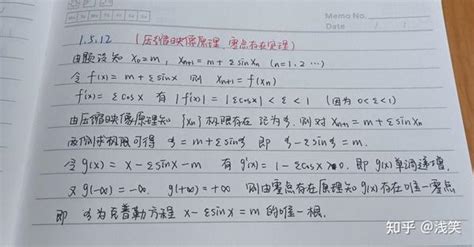 Memo No.
Date
1.5.12 (压缩映像原理、零点存在定理)
由题设知 x₀=m, xₙ₊₁=m+εsinxₙ (n=1,2…)
令 f(x)=m+εsinx 则 xₙ₊₁=f(xₙ)
f'(x)=εcosx 有 |f'(x)|=|εcosx|<ε<1 (因为0<ε<1)
由压缩映像原理知{xₙ}极限存在 记为ξ. 则对xₙ₊₁=m+εsinxₙ
两侧求极限可得 ξ=m+εsinξ 即 ξ-εsinξ=m.
令g(x)=x-εsinx-m 有g'(x)=1-εcosx>0. 即g(x)单调递增.
又g(-∞)=-∞. g(+∞)=+∞ 则由零点存在原理知g(x)存在唯一零点
即ξ为克普勒方程 x-εsinx=m的唯一根.
知乎 @浅笑